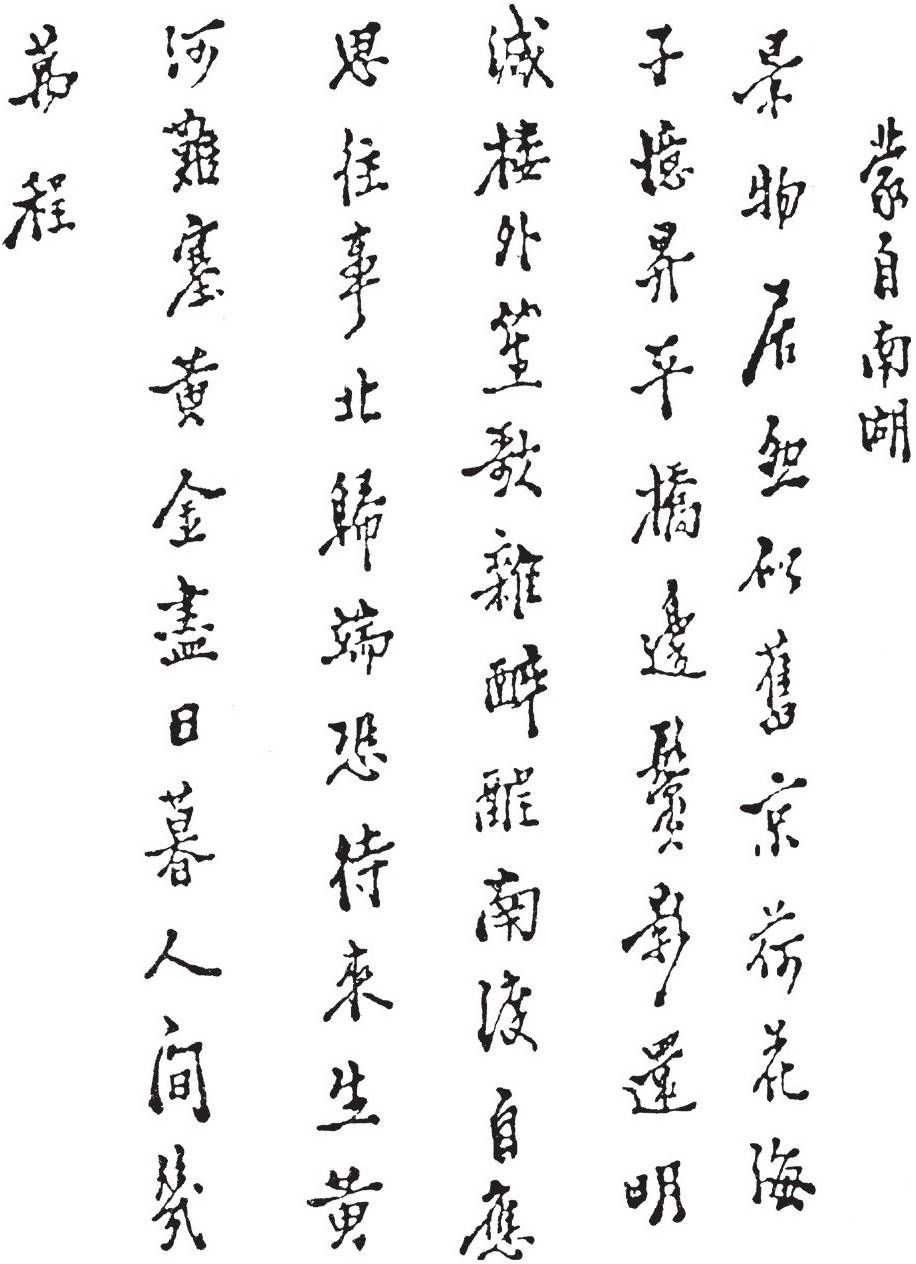 蒙自南湖
景物居然似舊京荷花海
子憶昇平橋邊鬢影還明
滅樓外笙歌雜醉醒南渡自應
思往事北歸端恐待來生黃
河難塞黃金盡日暮人間幾
萬程